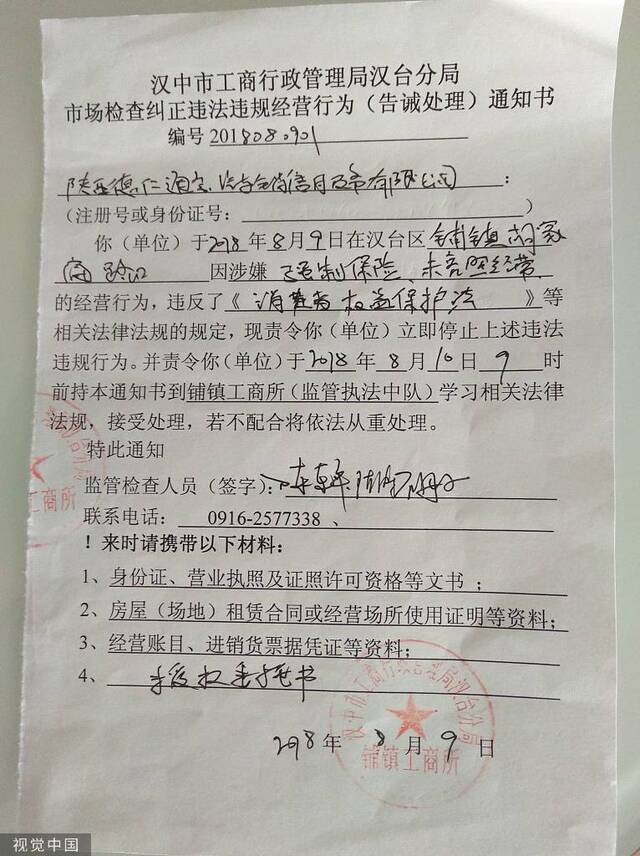 汉中市工商行政管理局汉台分局
市场检查纠正违法违规经营行为（告诫处理）通知书
编号 2018080901
陕西德仁通宝汽车 信息 有限公司：
（注册号或身份证号：）
你（单位）于2018年8月9日在汉台区铺镇
因涉嫌 强制保险、未亮照经营
的经营行为，违反了《消费者权益保护法》等
相关法律法规的规定，现责令你（单位）立即停止上述违法
违规行为。并责令你（单位）于2018年8月10日9时
前持本通知书到铺镇工商所（监管执法中队）学习相关法律
法规，接受处理，若不配合将依法从重处理。
特此通知
监管检查人员（签字）：
联系电话： 0916-2577338 、
！来时请携带以下材料：
1、身份证、营业执照及证照许可资格等文书；
2、房屋（场地）租赁合同或经营场所使用证明等资料；
3、经营账目、进销货票据凭证等资料；
4、授权委托书
汉中市工商行政管理局汉台分局
铺镇工商所
2018年8月9日
工商所
视觉中国